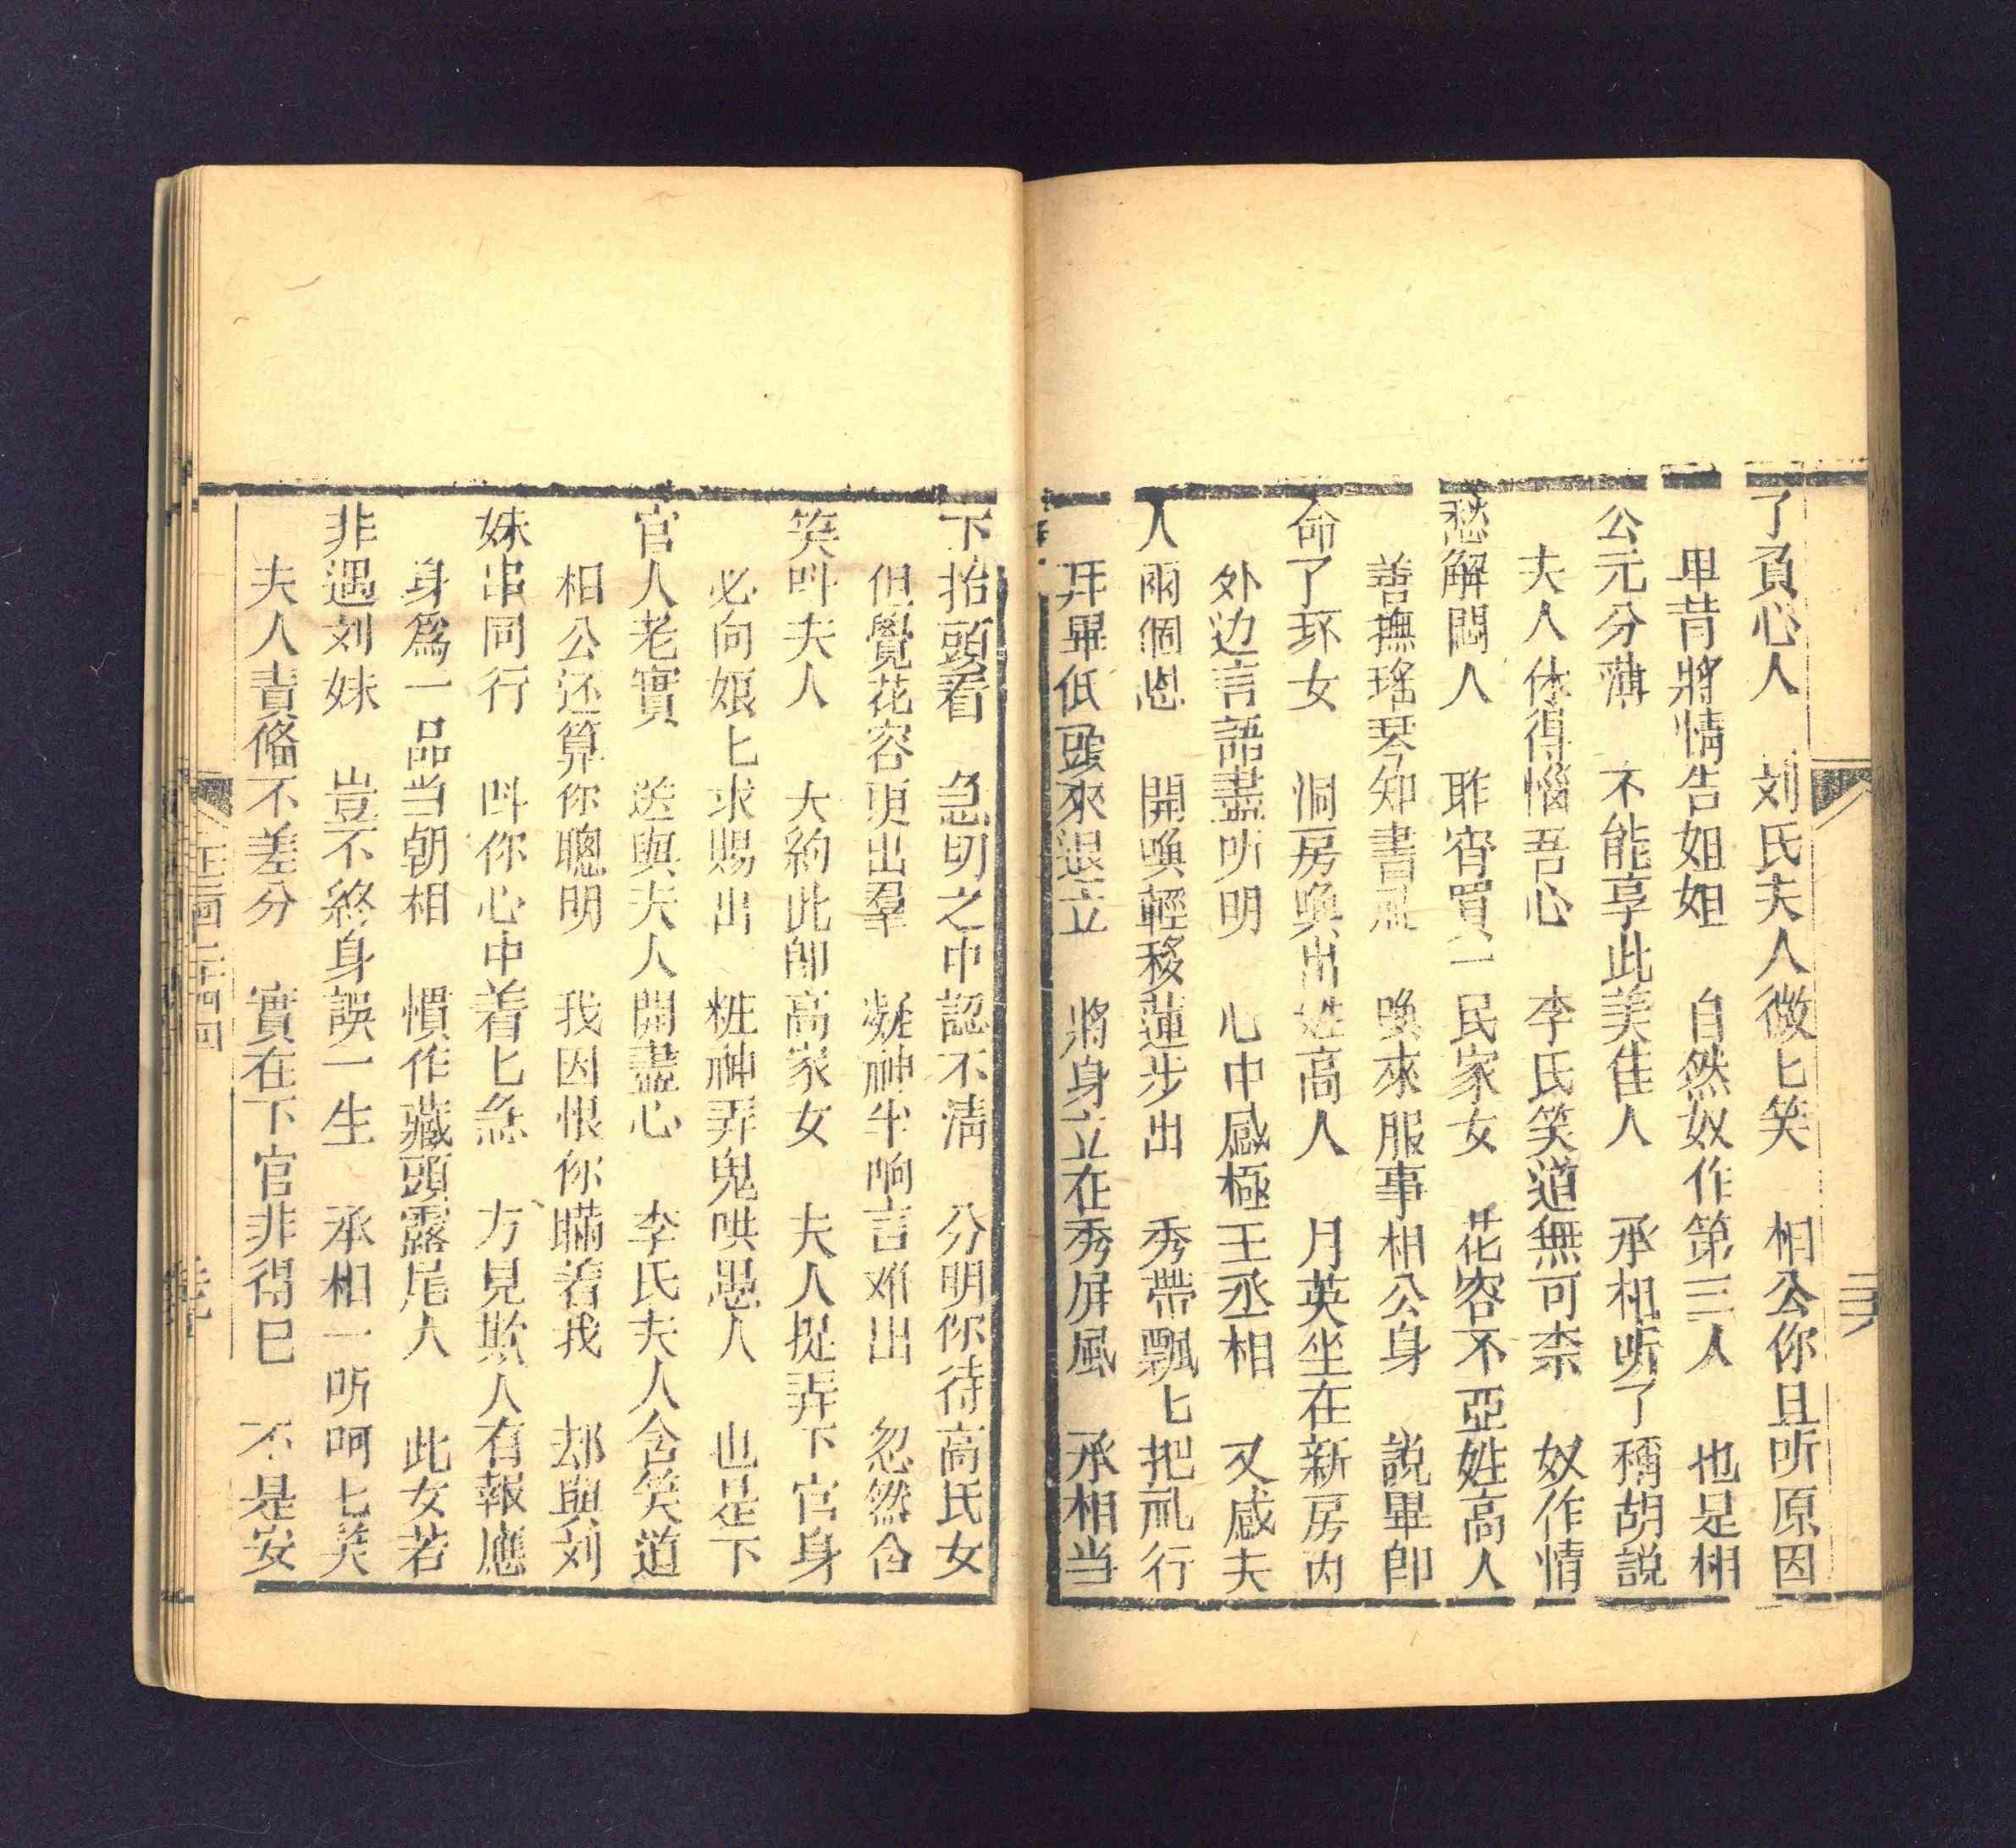 了負心人　刘氏夫人微匕笑　相公你且听原因
早昔將情告姐姐　自然奴作第三人　也是相
公元分薄　不能享此美佳人　承相听了稱胡説
夫人休得惱吾心　李氏笑道無可柰　奴作情
愁解悶人　昨宵買一民家女　花容不亞姓高人
善撫瑤琴知書礼　喚來服事相公身　説畢即
命了环女　洞房喚出姓高人　月英坐在新房内
外边言語盡听明　心中感極王丞相　又感夫
人兩個恩　開喚輕移蓮步出　秀帶飄匕把礼行
拜畢低頭來退立　將身立在秀屏風　承相当
下抬頭看　急切之中認不清　分明你待高氏女
但覺花容更出羣　凝神半晌言难出　忽然含
笑呌夫人　大約此即高家女　夫人捉弄下官身
必向娘匕求賜出　粧神弄鬼哄愚人　也是下
官人老實　送與夫人開盡心　李氏夫人含笑道
相公还算你聰明　我因恨你瞞着我　却與刘
妹串同行　呌你心中着匕急　方見欺人有報應
身爲一品当朝相　慣作藏頭露尾人　此女若
非遇刘妹　豈不終身誤一生　承相一听呵匕笑
夫人責俻不差分　實在下官非得已　不是安